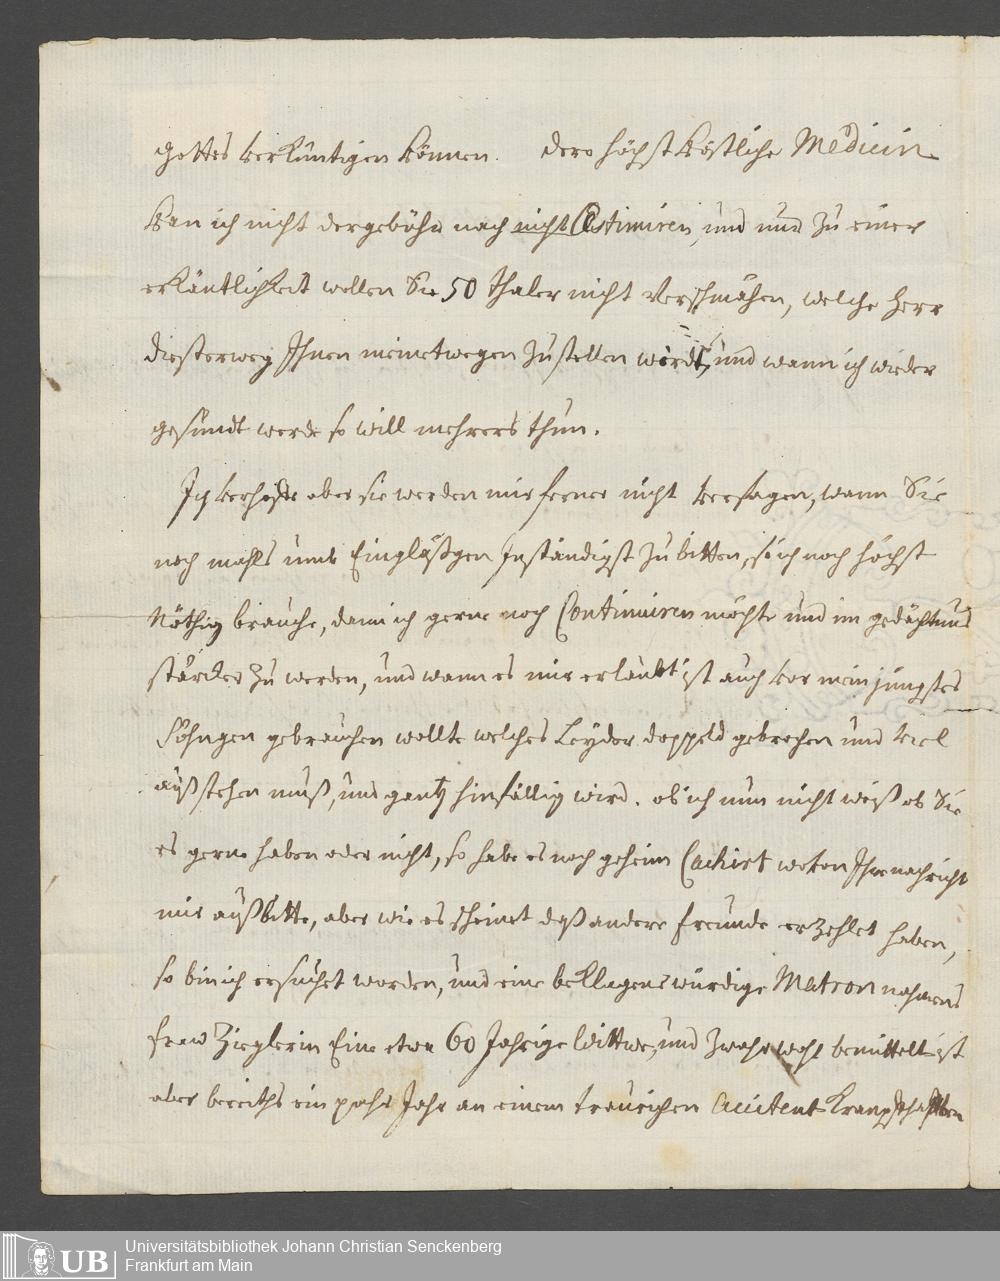 Gottes verkündigen können. dero höchst köstliche Medicin
kan ich nicht der gebühr nach nicht Æstimiren, und nur zu einer
erkäntlichkeit wollen Sie 50 thaler nicht verschmähen, welche Herr
Diesterweg Ihnen meinetwegen zustellen wirdt, und wann ich wieder
gesundt werde so will mehrers thun.
Ich verhoffe aber sie werden mir ferner nicht versagen, wann Sie
noch mahls umb Eingläßgen Inständigst zu bitten, so ich noch höchst
Nöthig brauche, dann ich gerne noch Continuiren möchte und im gedächtnus
stärcker zu werden, und wann es mir erlaubt ist auch vor mein jüngstes
Söhngen gebrauchen wollte welches Leyder doppeld gebrochen und viel
außstehen muß, und gantz hinfällig wird. ob ich nun nicht weiß ob Sie
es gerne haben oder nicht, so habe es noch geheim Cachirt Ihre nachricht
mir außbitte, aber wie es scheinet daß andere freunde erzehlet haben,
so bin ich ersuchet worden, und eine beklagenswürdige Matron nahmens
fraw Zieglerin Eine etwa 60 Jahrige Wittwe, und zwahr wohl bemittelt ist
aber bereiths ein pahr Jahr an einem traurigen